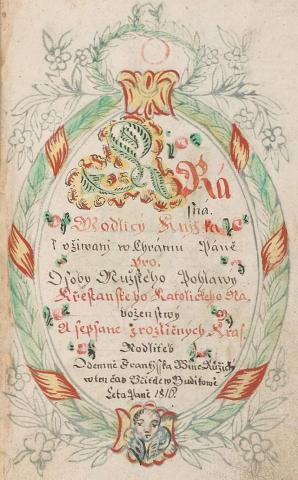 Kra
sná.
Modlicy Knižka
k vžiwani w Chrámu Páně
pro.
Osoby Mužskeho Pohlawy
Křestanskeho Katolickeho Na
boženstwy
A sepsane zrozličnych Kras
Modliteb
Odemně Frantisska
w ten čas w Buditowě
Leta Páně 1816.